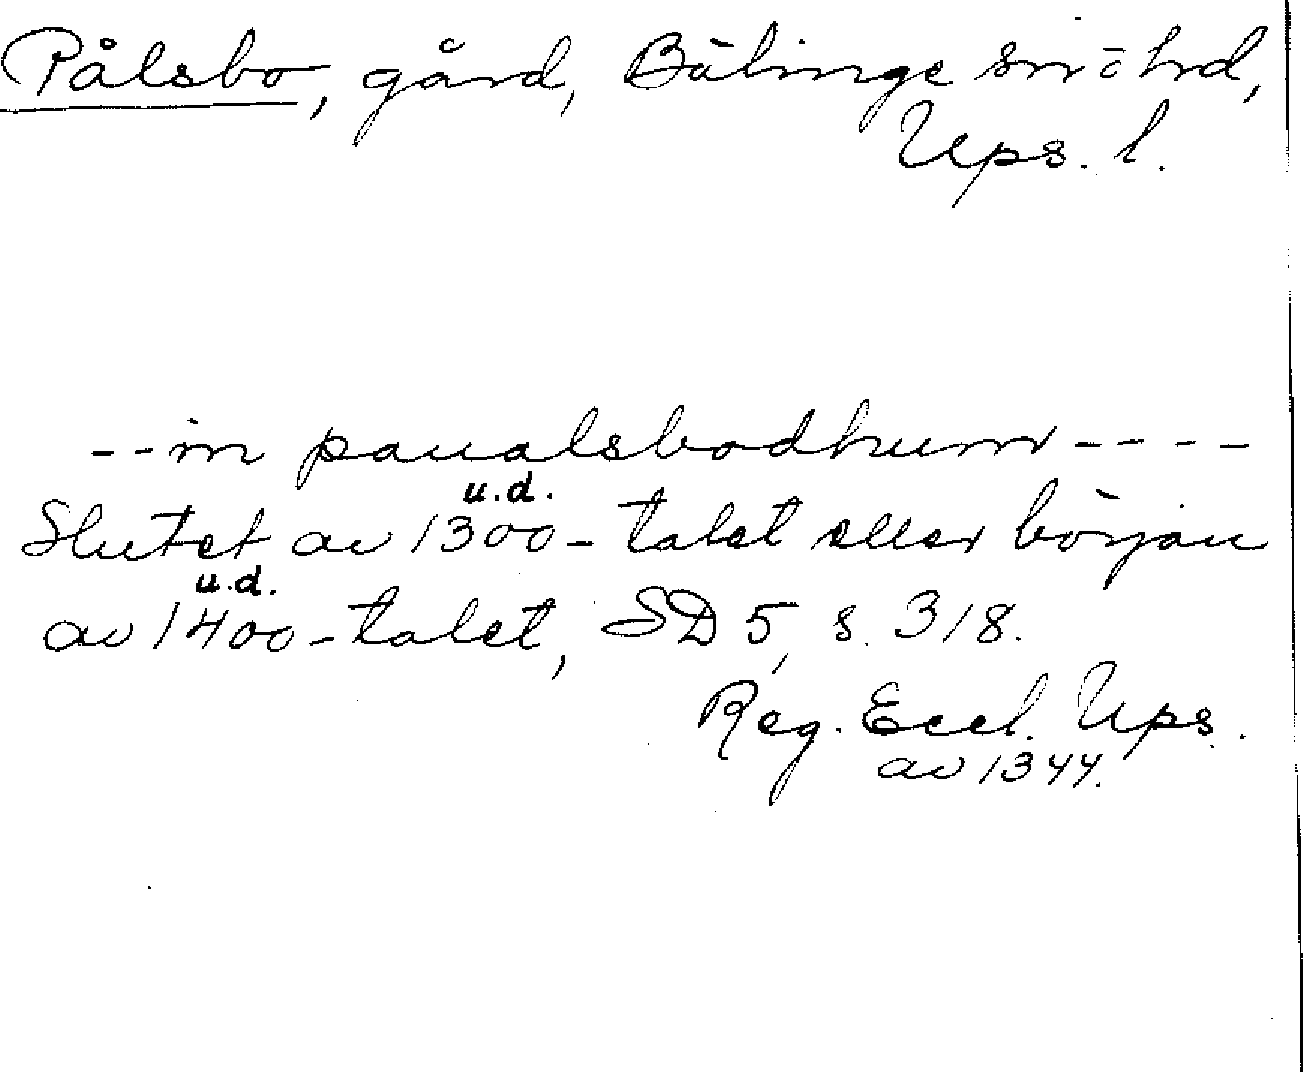 Pålsbo, gård, Bälinge sn o hd,
Ups. l.
--in paualsbodhum----
u.d.
Slutet av 1300-talet eller början
u.d.
av 1400-talet, SD 5, s. 318.
Reg. Eccl. Ups.
av 1344.